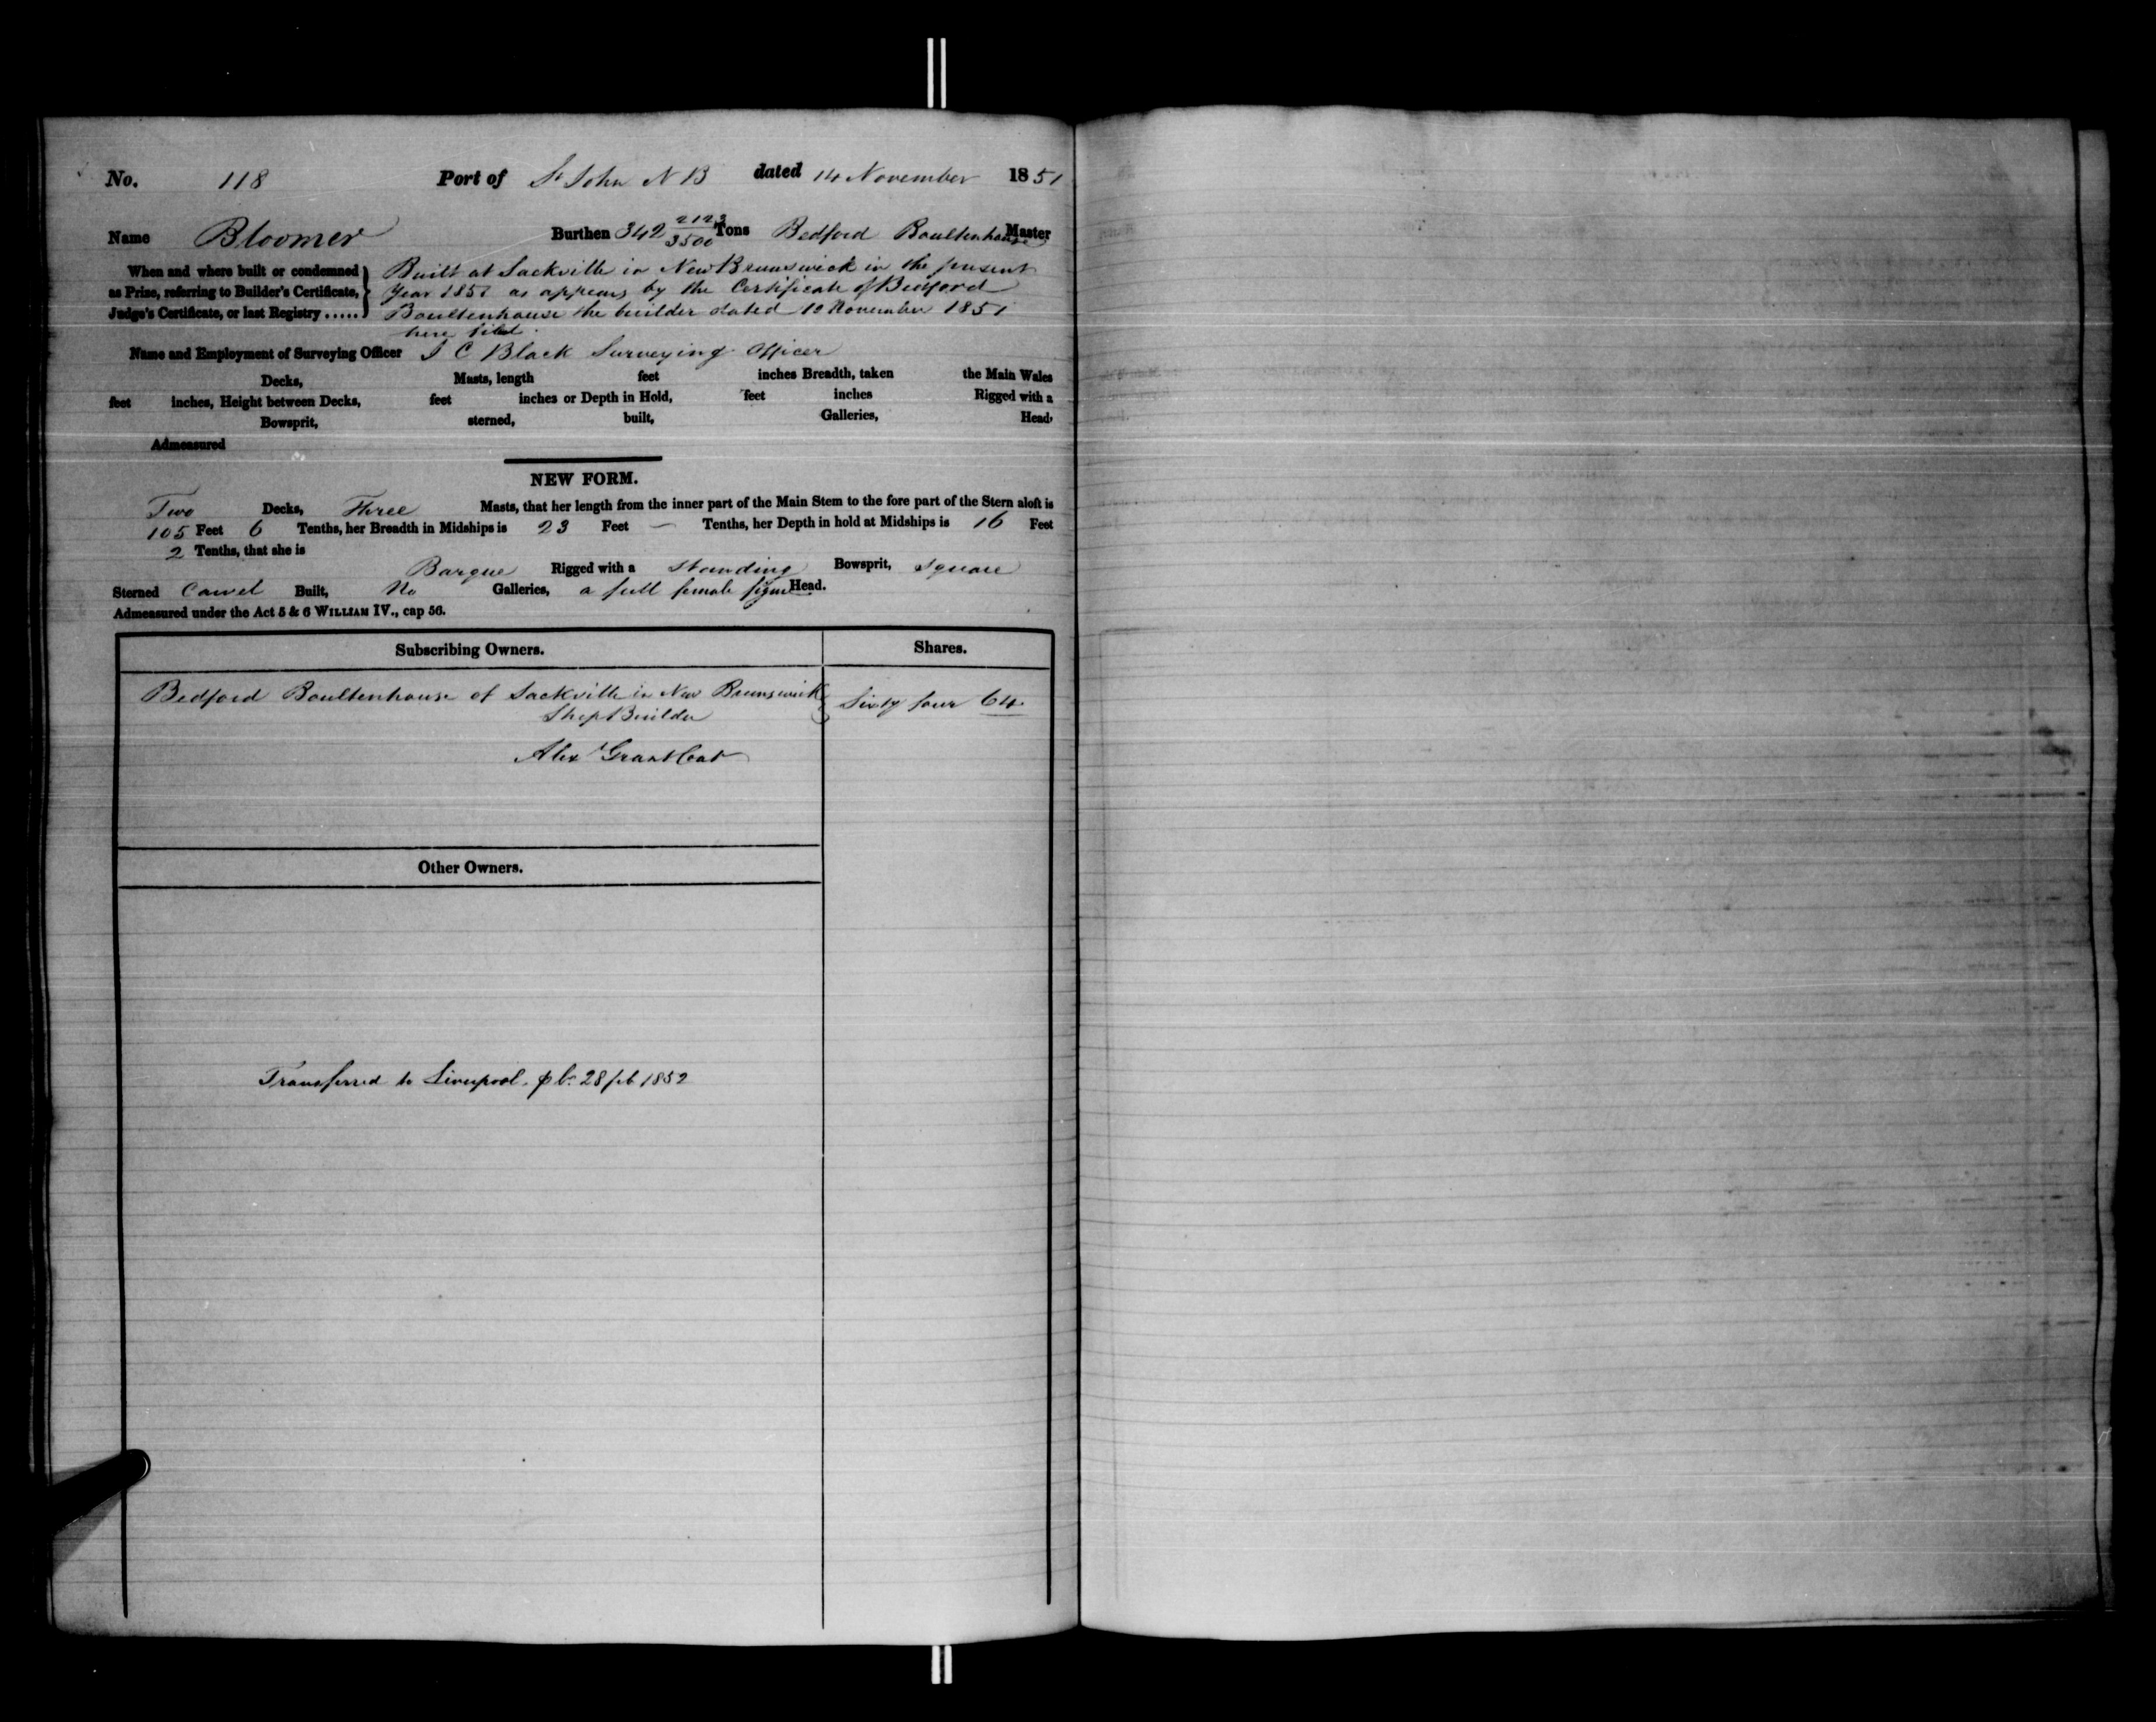 No. 118 Port of St John N B dated 14 November 1851
Name Bloomer Burthen 342 2123/3500 Tons Bedford Boultenhouse Master
When and where built or condemned as Prize, referring to Builder's Certificate, Judge's Certificate, or last Registry.....
Built at Sackville in New Brunswick in the present
Year 1851 as appears by the Certificate of Bedford
Boultenhouse the builder dated 10 November 1851
here filed.
Name and Employment of Surveying Officer J C Black Surveying Officer
Decks, Masts, length feet inches Breadth, taken the Main Wales
feet inches, Height between Decks, feet inches or Depth in Hold, feet inches Rigged with a
Bowsprit, sterned, built, Galleries, Head,
Admeasured
NEW FORM.
Two Decks, Three Masts, that her length from the inner part of the Main Stem to the fore part of the Stern aloft is
105 Feet 6 Tenths, her Breadth in Midships is 23 Feet — Tenths, her Depth in hold at Midships is 16 Feet
2 Tenths, that she is
Barque Rigged with a standing Bowsprit, square
Sterned Carvel Built, No Galleries, a full female figure Head.
Admeasured under the Act 5 & 6 WILLIAM IV., cap 56.
Subscribing Owners. Shares.
Bedford Boultenhouse of Sackville in New Brunswick Sixty four 64
Ship Builder
Alexr Grant Cont
Other Owners.
Transferred to Liverpool. 28 feb 1852